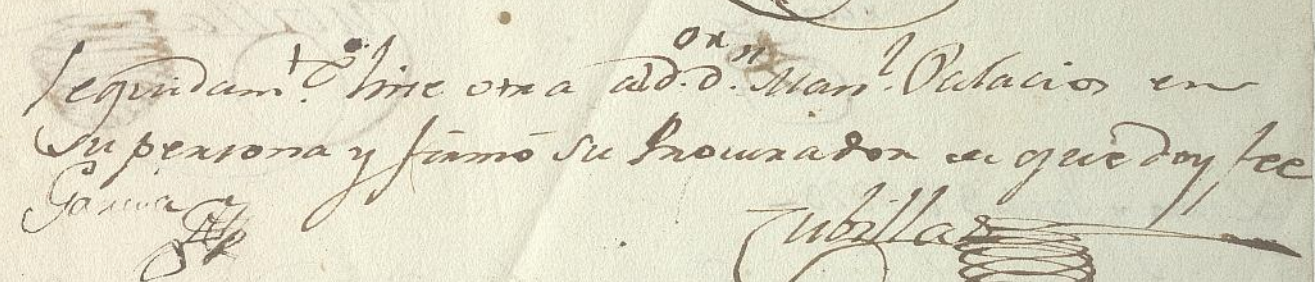 seguidam.te hice otra al D.r D.n Man.l Palacios en
su persona y firmó su Procurador de que doy fee
Garcia
Cubillas